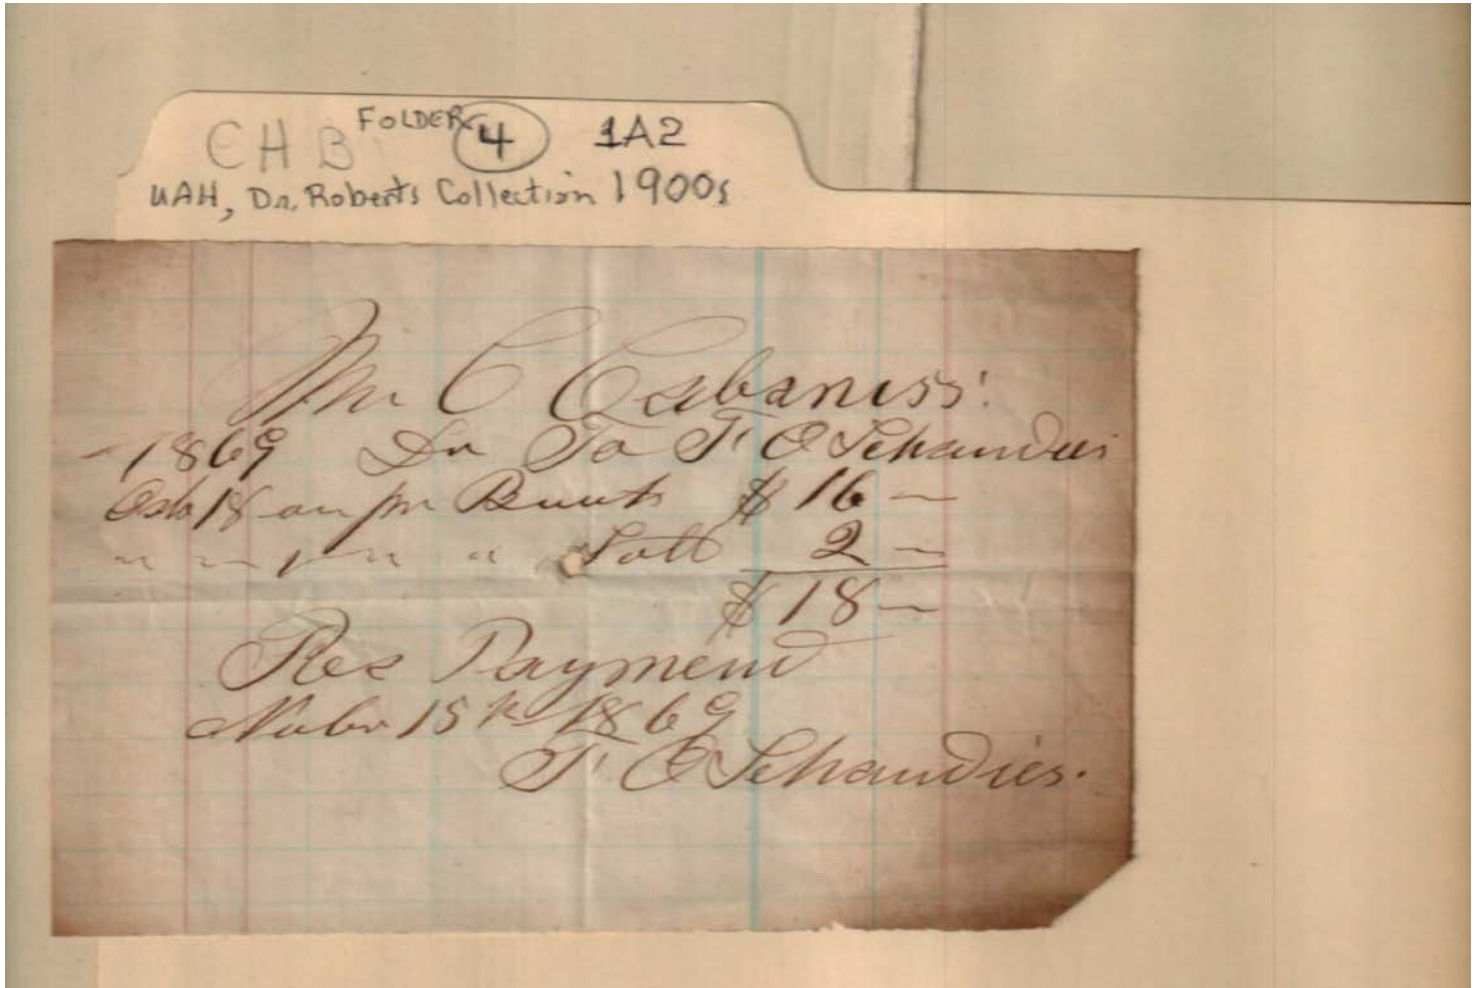 CHB FOLDER 4 1A2
UAH, Dr. Roberts Collection 1900s
Mr C Cabaniss
1869 Dr To T. O Schaudies
Octo 18 on pr Buuts $ 16 —
" " pr " $ 2 —
$ 18 —
Rec Payment
Nobr 15th 1869
T. O Schaudies.